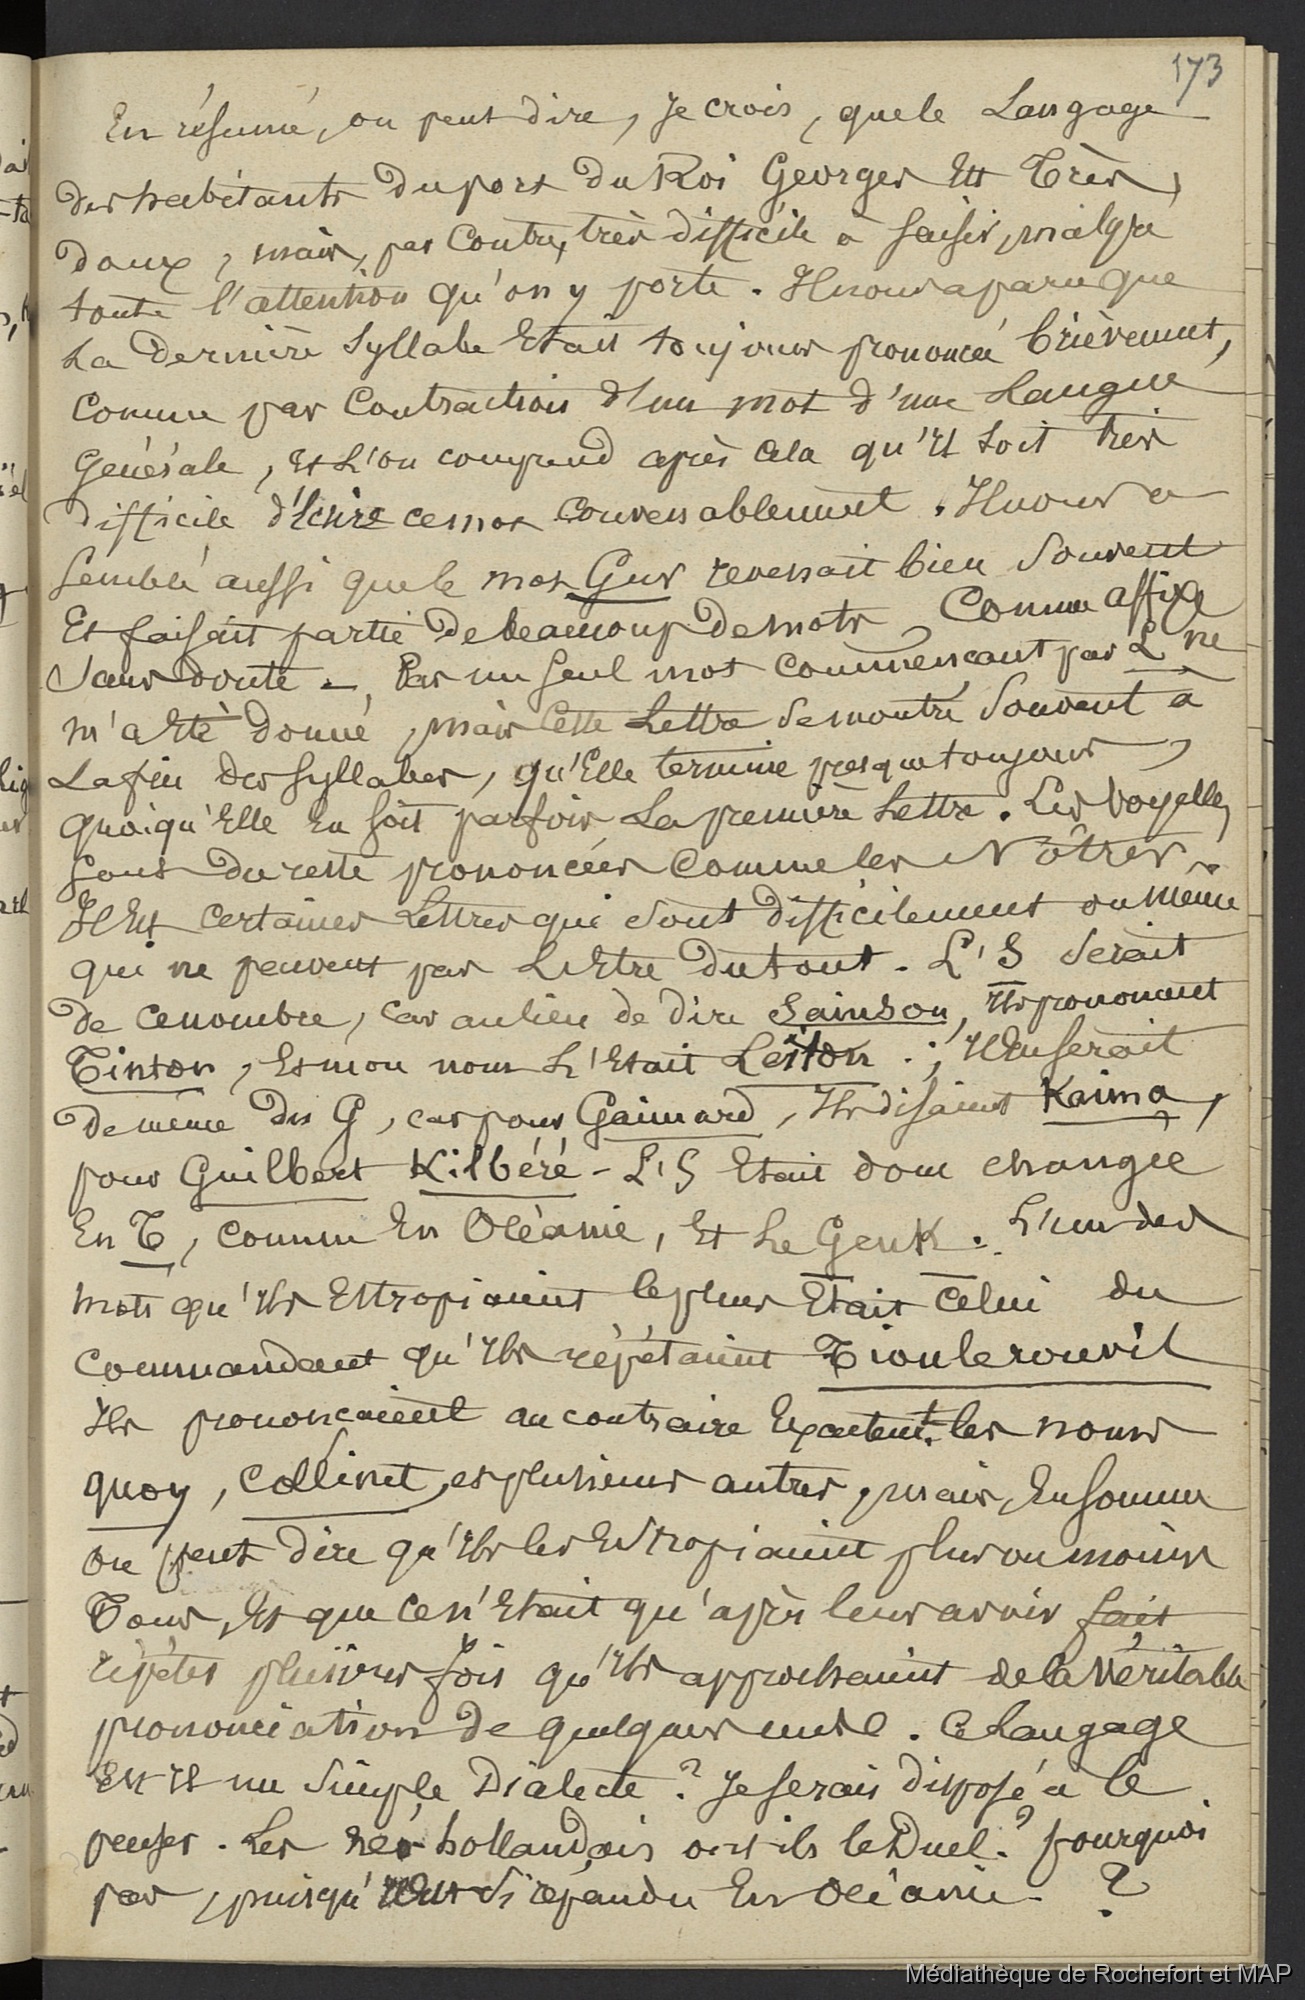 173
En résumé, on peut dire, Je crois, que le Langage
des habitants du port du Roi Georges Est Très,
doux, mais, par Contre, très difficile à saisir, malgré
toute l'attention qu'on y porte. Il nous a paru que
La Dernière Syllabe Etait toujours prononcée brièvement,
Comme par Contraction d'un mot d'une Langue
Générale, Et L'on comprend après cela qu'il soit très
difficile d'Ecrire ce mot Convenablement. Il nous a
semblé aussi que le mot Gur revenait bien souvent
Et faisait partie de beaucoup de mots, Comme affixe
sans doute –, Pas un seul mot commençant par L ne
m'a Eté donné, mais Cette Lettre se montre souvent à
La fin des syllabes, qu'Elle termine presque toujours,
quoiqu'Elle En soit parfois La première Lettre. Les Voyelles,
sont du reste prononcées comme les Nôtres.
Il Est certaines Lettres qui sont difficilement ou même
qui ne peuvent pas L'Etre du tout. L'S serait
de ce nombre, car au lieu de dire Sainson, Ils prononcent
Tinton, Et mon nom L'Etait Leiton .; Il En serait
de même des G, car pour Gaimard, Ils disaient Kaima,
pour Guilbert Kilbéré – L'S Etait donc changée
En T, comme En Océanie, Et Le G en K. L'un des
mots qu'Ils Estropiaient le plus Etait celui du
commandant qu'Ils répétaient Tioulerouvil
Ils prononçaient au contraire Exactemt. les noms
quoy, Collinet, et plusieurs autres, mais, En somme
on peut dire qu'Ils les Estropiaient plus ou moins
Tous, Et que ce n'Etait qu'après leur avoir fait
répéter plusieurs fois qu'Ils approchaient de la Véritable
prononciation de quelques uns. Ce Langage
Est Il un simple Dialecte? Je serais disposé à le
penser. Les néo-hollandais ont ils le Duel? pourquoi
pas, puisqu'Il Est si répandu En Océanie – ?
Médiathèque de Rochefort et MAP